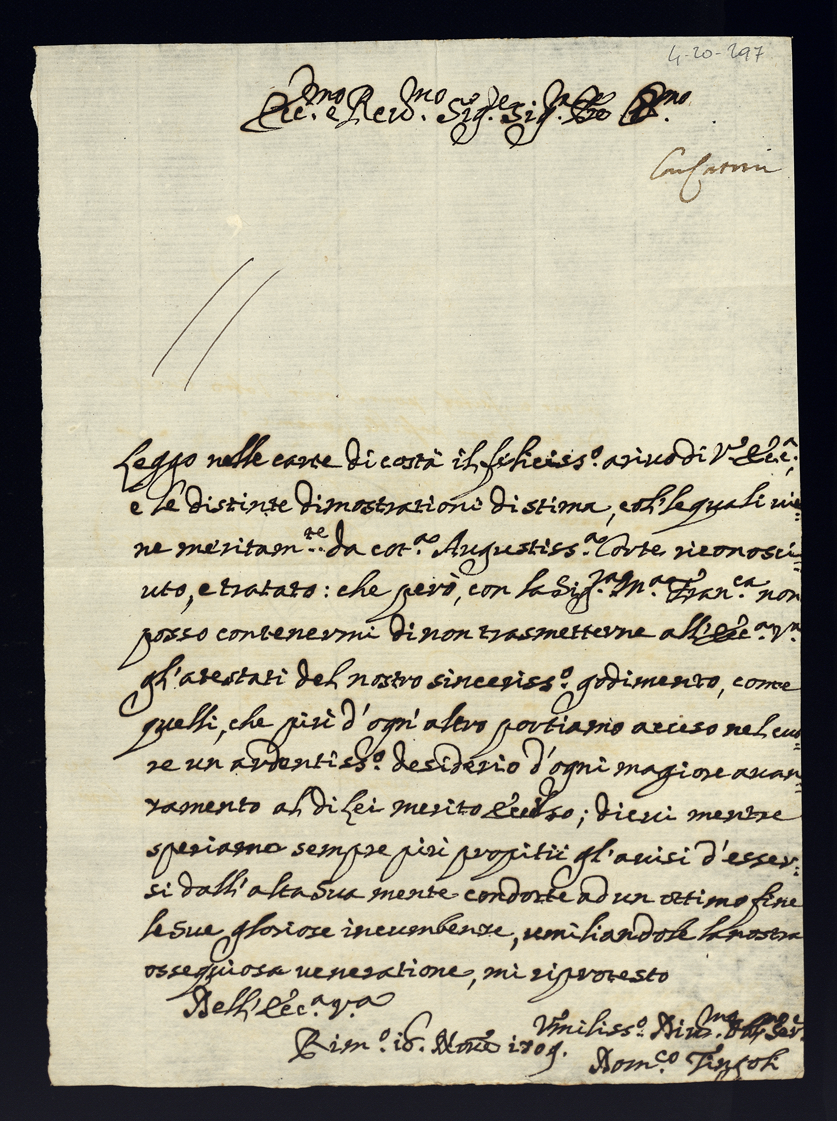 4-20-297
Ecc.mo e Reid.mo Sig.e Sig.
Leggo nelle carte di costà il feliciss.o arivo di V.a Ecc.a,
e le distinte dimostrationi di stima, con le quali vie=
ne meritam.te da cot.a Augustiss.a Corte riconosci=
uto, e tratato: che però, con la Sig.ra M.a Fran.ca non
posso contenermi di non trasmetterne all'Ecc.a V.a
gl'atestati del nostro sinceriss.o godimento, come
quelli, che più d'ogn'altro portiamo acceso nel cuo=
re un ardentiss.o desiderio d'ogni magiore avan=
tamento al di Lei merito; di cui mentre
speriamo sempre più propitii gl'avisi d'esser=
si dall'alta sua mente condotte ad un ottimo fine
le sue gloriose incumbenze, umiliandole la nostra
ossequiosa veneratione, mi riprotesto
Dell'Ecc.a V.a
Umiliss.o Div.mo Ser.e
Rim.o 16. Nov.e 1709.
Dom.co Tingoli